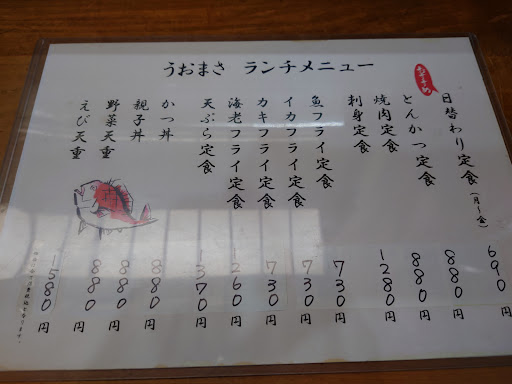 うおまさ ランチメニュー
おすすめ
日替わり定食(月〜金) 690円
とんかつ定食 880円
焼肉定食 880円
刺身定食 1280円
魚フライ定食 730円
イカフライ定食 730円
カキフライ定食 730円
海老フライ定食 1260円
天ぷら定食 1370円
かつ丼 880円
親子丼 880円
野菜天重 880円
えび天重 1580円